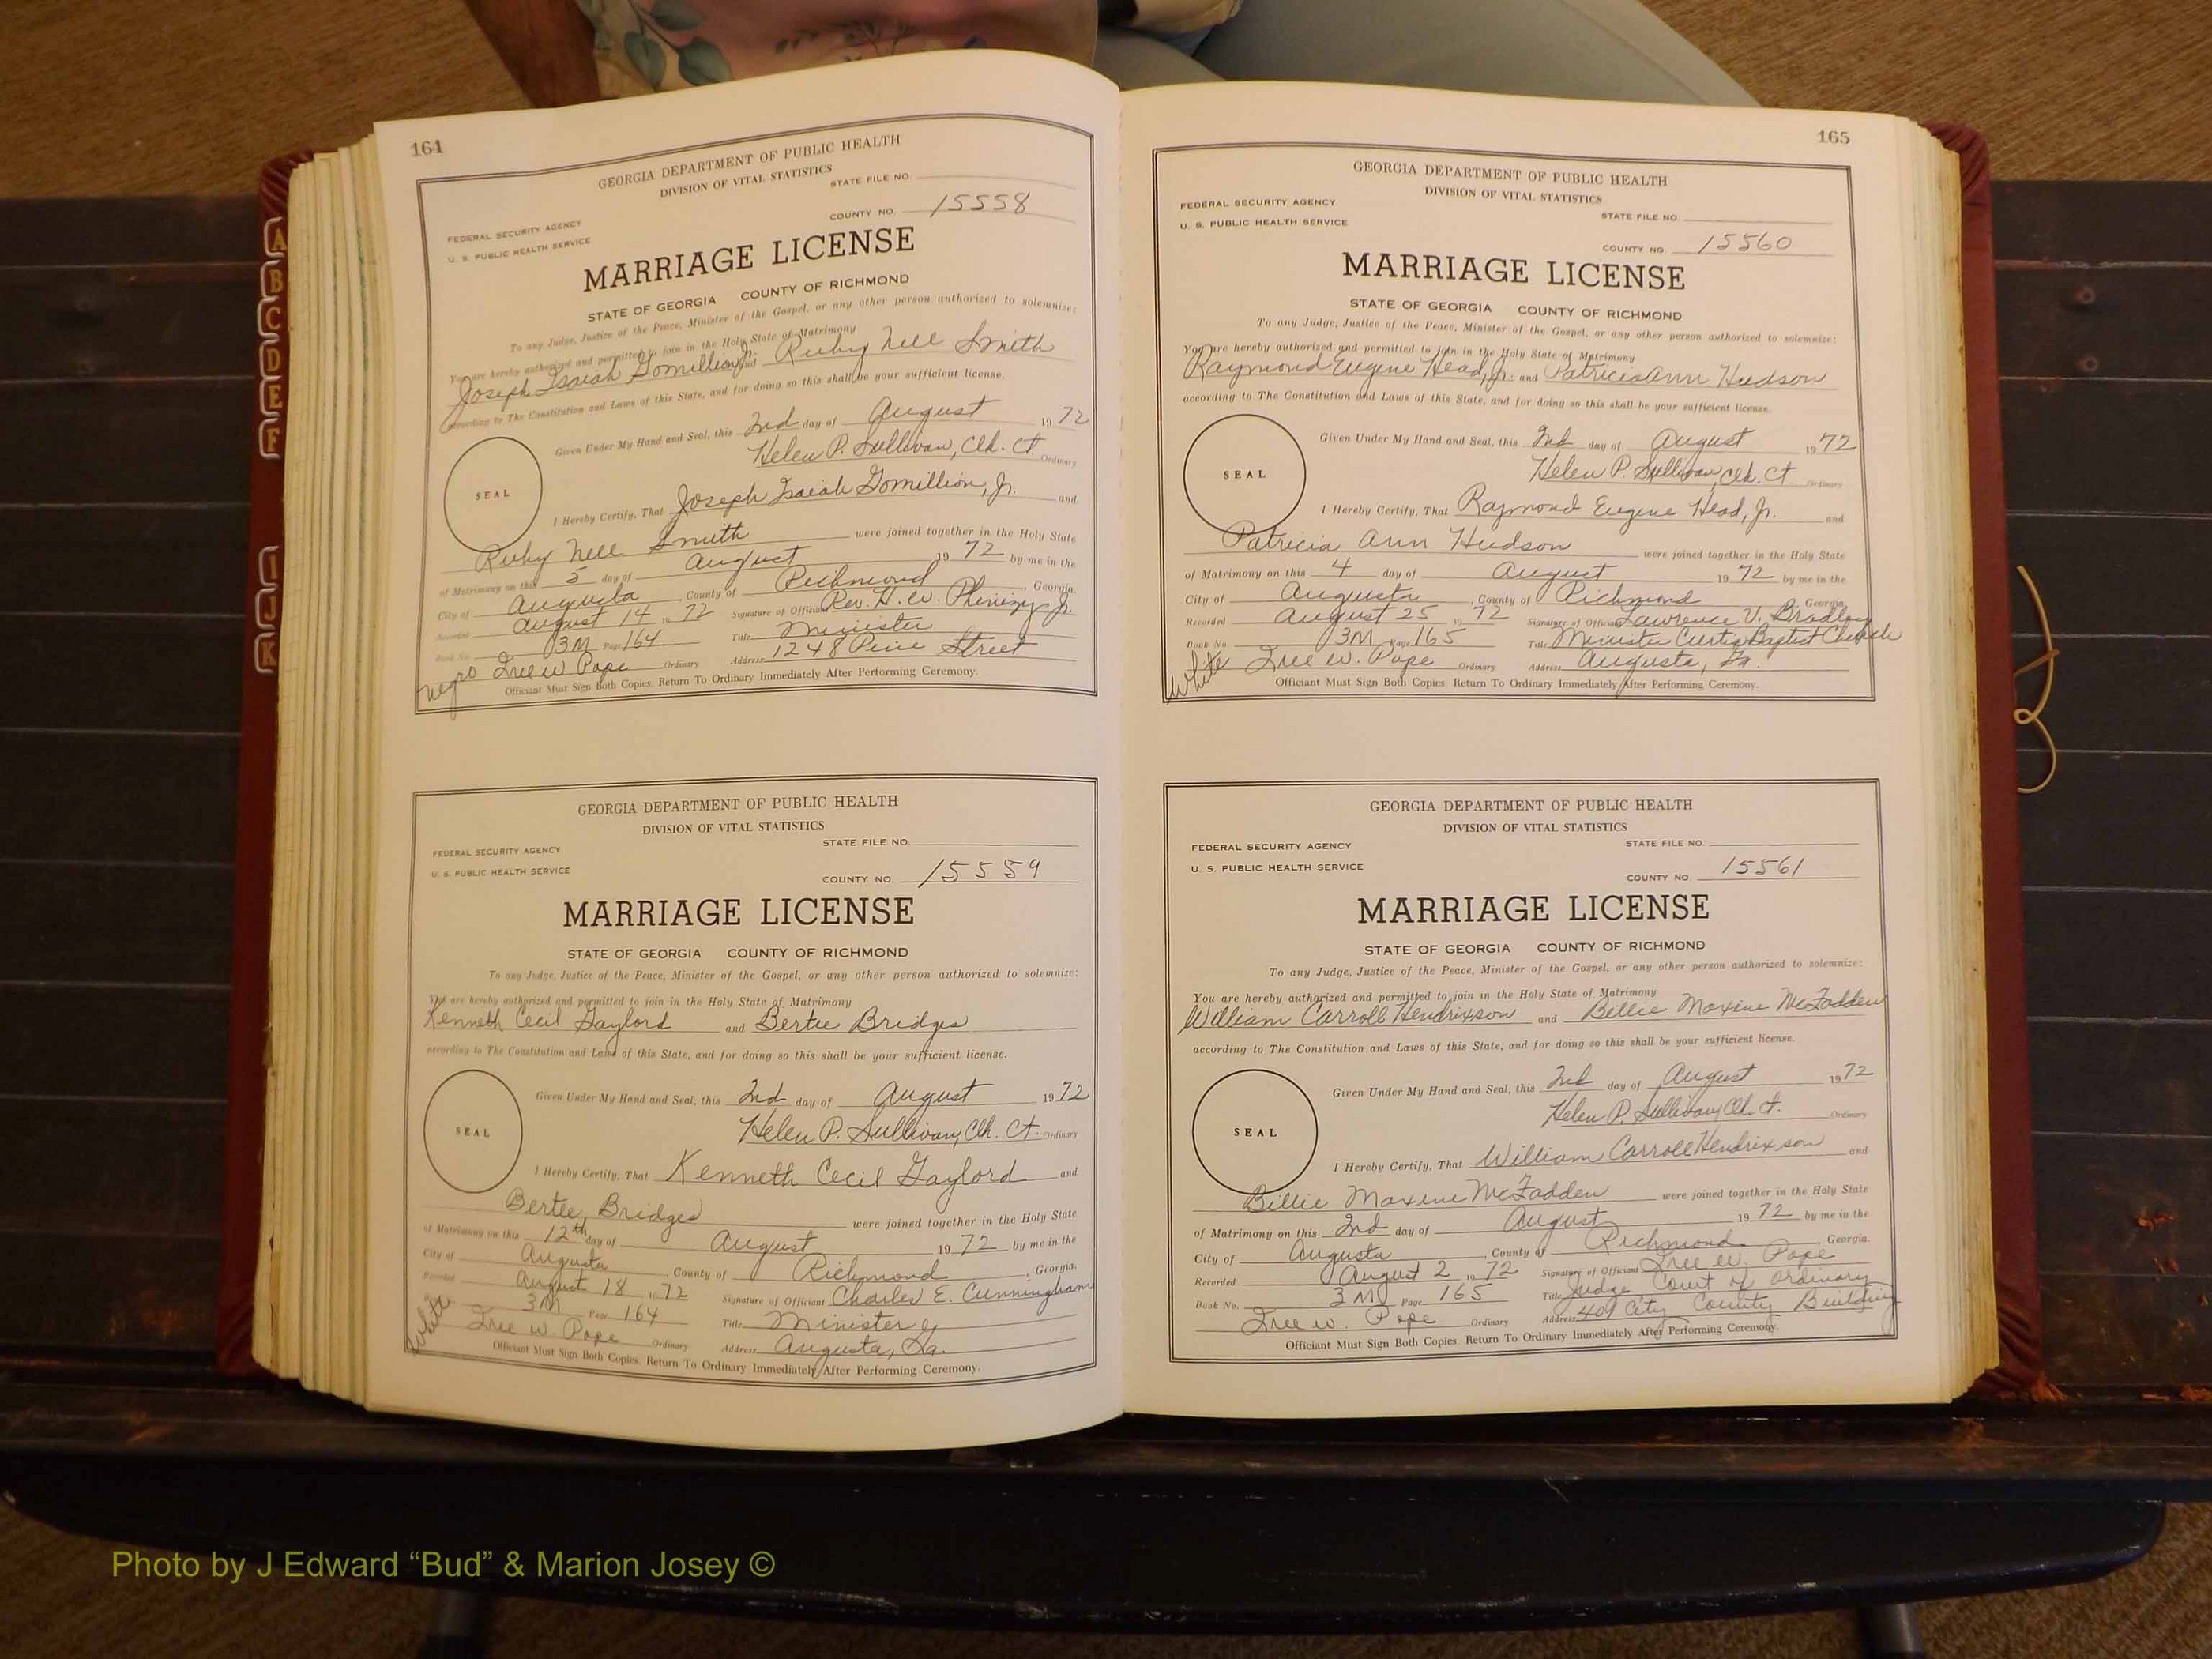 164
GEORGIA DEPARTMENT OF PUBLIC HEALTH
DIVISION OF VITAL STATISTICS
STATE FILE NO.
COUNTY NO. 15558
FEDERAL SECURITY AGENCY
U. S. PUBLIC HEALTH SERVICE
MARRIAGE LICENSE
STATE OF GEORGIA COUNTY OF RICHMOND
To any Judge, Justice of the Peace, Minister of the Gospel, or any other person authorized to solemnize:
You are hereby authorized and permitted to join in the Holy State of Matrimony
Joseph Isaiah Gomillion, Jr. and Ruby Nell Smith
according to The Constitution and Laws of this State, and for doing so this shall be your sufficient license.
Given Under My Hand and Seal, this 2nd day of August 1972
Helen P. Sullivan, Clk. Ct. Ordinary
SEAL
I Hereby Certify, That Joseph Isaiah Gomillion, Jr. and
Ruby Nell Smith were joined together in the Holy State
of Matrimony on this 5 day of August 1972 by me in the
City of Augusta, County of Richmond, Georgia.
Recorded August 14 1972 Signature of Officiant Rev. H. W. Phinizy Jr.
Book No. 3M Page 164 Title Minister
negro Ordinary Address 1248 Pine Street
Officiant Must Sign Both Copies. Return To Ordinary Immediately After Performing Ceremony.
GEORGIA DEPARTMENT OF PUBLIC HEALTH
DIVISION OF VITAL STATISTICS
STATE FILE NO.
FEDERAL SECURITY AGENCY
U. S. PUBLIC HEALTH SERVICE
COUNTY NO. 15559
MARRIAGE LICENSE
STATE OF GEORGIA COUNTY OF RICHMOND
To any Judge, Justice of the Peace, Minister of the Gospel, or any other person authorized to solemnize:
You are hereby authorized and permitted to join in the Holy State of Matrimony
Kenneth Cecil Gaylord and Bertie Bridges
according to The Constitution and Laws of this State, and for doing so this shall be your sufficient license.
Given Under My Hand and Seal, this 2nd day of August 1972
Helen P. Sullivan, Clk. Ct. Ordinary
SEAL
I Hereby Certify, That Kenneth Cecil Gaylord and
Bertie Bridges were joined together in the Holy State
of Matrimony on this 12th day of August 1972 by me in the
City of Augusta, County of Richmond, Georgia.
Recorded August 18 1972 Signature of Officiant Charles E. Cunningham
3M Page 164 Title Minister
White Ordinary Address Augusta, Ga.
Officiant Must Sign Both Copies. Return To Ordinary Immediately After Performing Ceremony.
165
GEORGIA DEPARTMENT OF PUBLIC HEALTH
DIVISION OF VITAL STATISTICS
FEDERAL SECURITY AGENCY
U. S. PUBLIC HEALTH SERVICE
STATE FILE NO.
COUNTY NO. 15560
MARRIAGE LICENSE
STATE OF GEORGIA COUNTY OF RICHMOND
To any Judge, Justice of the Peace, Minister of the Gospel, or any other person authorized to solemnize:
You are hereby authorized and permitted to join in the Holy State of Matrimony
Raymond Eugene Head, Jr. and Patricia Ann Hudson
according to The Constitution and Laws of this State, and for doing so this shall be your sufficient license.
Given Under My Hand and Seal, this 2nd day of August 1972
Helen P. Sullivan, Clk. Ct. Ordinary
SEAL
I Hereby Certify, That Raymond Eugene Head, Jr. and
Patricia Ann Hudson were joined together in the Holy State
of Matrimony on this 4 day of August 1972 by me in the
City of Augusta, County of Richmond, Georgia
Recorded August 25 1972 Signature of Officiant Lawrence V. Bradley
Book No. 3M Page 165 Title Minister Curtis Baptist Church
White Ordinary Address Augusta, Ga.
Officiant Must Sign Both Copies. Return To Ordinary Immediately After Performing Ceremony.
GEORGIA DEPARTMENT OF PUBLIC HEALTH
DIVISION OF VITAL STATISTICS
STATE FILE NO.
FEDERAL SECURITY AGENCY
U. S. PUBLIC HEALTH SERVICE
COUNTY NO. 15561
MARRIAGE LICENSE
STATE OF GEORGIA COUNTY OF RICHMOND
To any Judge, Justice of the Peace, Minister of the Gospel, or any other person authorized to solemnize:
You are hereby authorized and permitted to join in the Holy State of Matrimony
William Carroll Hendrixson and Billie Maxine McFadden
according to The Constitution and Laws of this State, and for doing so this shall be your sufficient license.
Given Under My Hand and Seal, this 2nd day of August 1972
Helen P. Sullivan, Clk. Ct. Ordinary
SEAL
I Hereby Certify, That William Carroll Hendrixson and
Billie Maxine McFadden were joined together in the Holy State
of Matrimony on this 2nd day of August 1972 by me in the
City of Augusta, County of Richmond, Georgia.
Recorded August 2 1972 Signature of Officiant W. Pope
Book No. 3M Page 165 Title Judge Court of Ordinary
W. Pope Ordinary Address 401 City County Building
Officiant Must Sign Both Copies. Return To Ordinary Immediately After Performing Ceremony.
A
B
C
D
E
F
I
J
K
Photo by J Edward “Bud” & Marion Josey ©